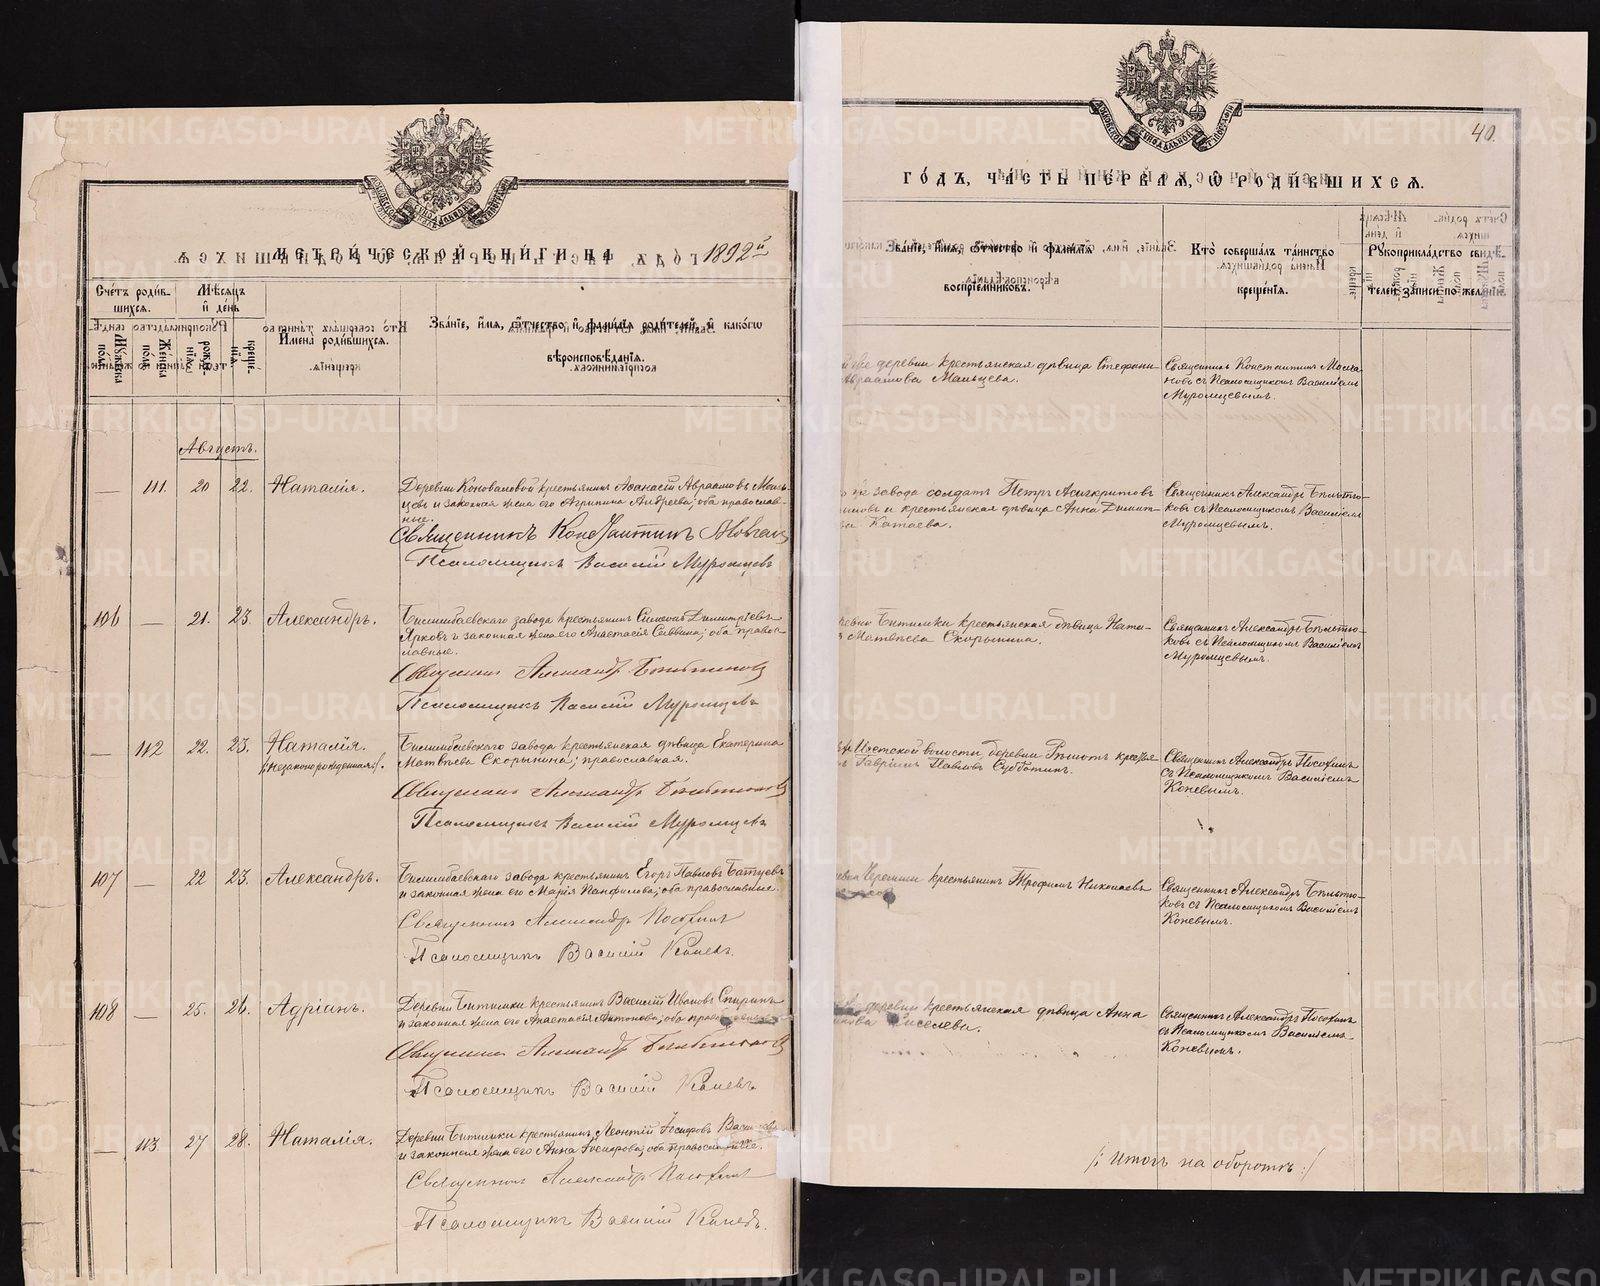 метрической книги на 1892й
Счетъ родившихся.
Мужеска полъ.
Женска полъ.
Мѣсяцъ и день
рожденія.
крещенія.
Имена родившихся.
Званіе, имя, отчество и фамилія родителей, и какого
вѣроисповѣданія.
Августъ.
— 111. 20 22. Наталія.
Деревни Коноваловой крестьянинъ Аѳанасій Авраамовъ Маль-
цевъ и законная жена его Агрипина Андреева; оба православ-
ные.
Священникъ Константинъ
Псаломщикъ Василій Муромцевъ
106 — 21. 23. Александръ.
Билимбаевскаго завода крестьянинъ Симеонъ Димитріевъ
Ярковъ и законная жена его Анастасія Саввина; оба право-
славные.
Священникъ Александръ
Псаломщикъ Василій Муромцевъ
— 112 22. 23. Наталія.
/незаконорожденная/.
Билимбаевскаго завода крестьянская дѣвица Екатерина
Матвѣева Скорынина; православная.
Священникъ Александръ
Псаломщикъ Василій Муромцевъ
107 — 22 23. Александръ.
Билимбаевскаго завода крестьянинъ Егоръ Павловъ Батуевъ
и законная жена его Марія Панфилова; оба православные.
Священникъ Александръ Посохинъ
Псаломщикъ Василій Коневъ.
108 — 25. 26. Адріанъ.
Деревни Битимки крестьянинъ Василій Ивановъ Спиринъ
и законная жена его Анастасія Антонова; оба православные
Священникъ Александръ
Псаломщикъ Василій Коневъ
— 113. 27 28. Наталія.
Деревни Битимки крестьянинъ Леонтій Іосифовъ
и законная жена его Анна; оба православные.
Священникъ Александръ Посохинъ
Псаломщикъ Василій Коневъ.
40.
годъ, часть первая, ѡ родившихся.
Званіе, имя, отчество и фамилія
воспріемниковъ.
Кто совершалъ таинство
крещенія.
Рукоприкладство свидѣ-
телей записи по желанію
деревни крестьянская дѣвица Стефани-
Авраамова Мальцева.
Священникъ Константинъ
новъ съ Псаломщикомъ Василіемъ
Муромцевымъ.
завода солдатъ Петръ Асигкритовъ
и крестьянская дѣвица Анна Димит-
Катаева.
Священникъ Александръ Бѣльтю-
ковъ съ Псаломщикомъ Василіемъ
Муромцевымъ.
Битимки крестьянская дѣвица Ната-
Матвѣева Скорынина.
Священникъ Александръ Бѣльтю-
ковъ съ Псаломщикомъ Василіемъ
Муромцевымъ.
волости, деревни Рѣшотъ крестья
Гавріилъ Павловъ Субботинъ.
Священникъ Александръ Посохинъ
съ Псаломщикомъ Василіемъ
Коневымъ.
крестьянинъ Трофимъ Николаевъ
Священникъ Александръ Бѣльтю-
ковъ съ Псаломщикомъ Василіемъ
Коневымъ.
деревни крестьянская дѣвица Анна
Киселева.
Священникъ Александръ Посохинъ
съ Псаломщикомъ Василіемъ
Коневымъ.
/: Итогъ на оборотѣ :/
METRIKI.GASO-URAL.RU